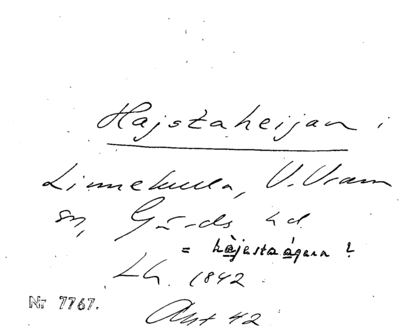 Hajstaheijan i
Linnekulla, V. Vram
sn, Gärds hd.
= hàjestaàgern ?
Lh. 1842
Nr 7767.
Aht 42